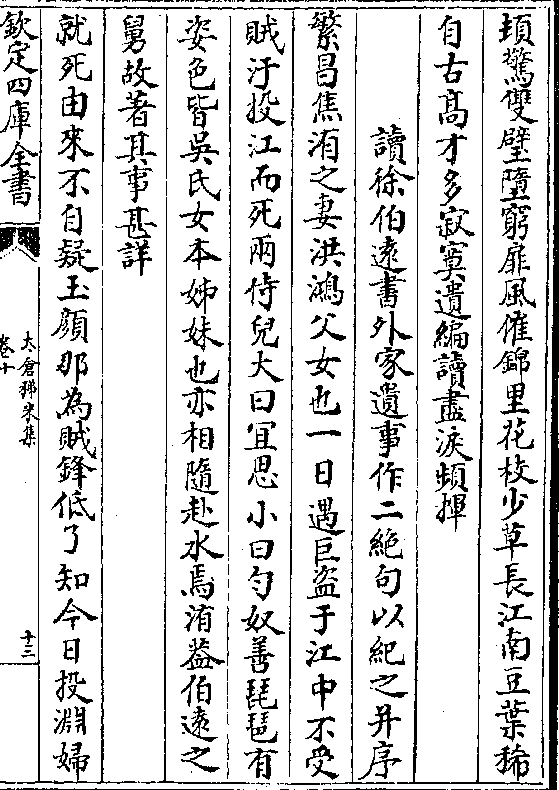 頬驚雙壁墮窮扉風催錦里花枝少草長江南豆葉稀
自古髙才多寂寞遺編讀盡淚頻揮
讀徐伯逺書外家遺事作二絶句以紀之并序
繁昌焦洧之妻洪鴻父女也一日遇巨盗于江中不受
賊汙投江而死兩侍兒大曰宜思小曰勺奴善琵琶有
姿色皆吳氏女本姊妹也亦相隨赴水焉洧葢伯逺之
舅故著其事甚詳
就死由來不自疑玉顔那為賊鋒低了知今日投淵婦
欽定四庫全書
太倉稊米集
卷十
十二